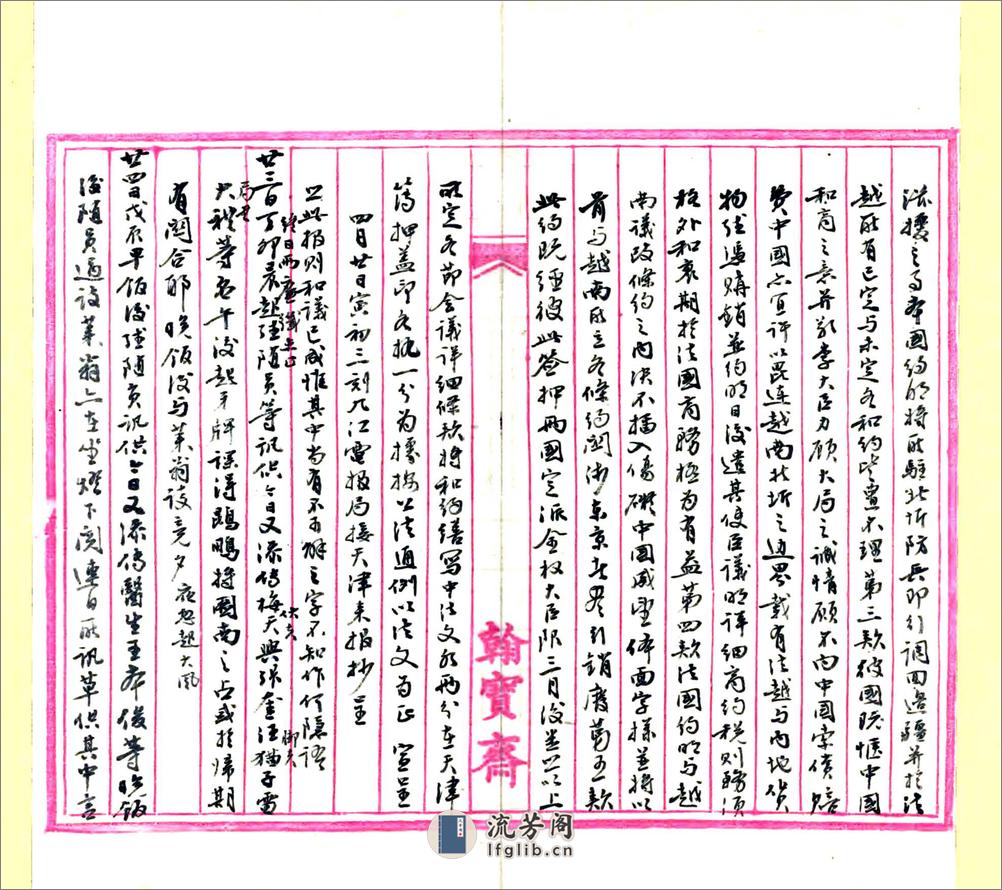 滋擾之局本國約明將所駐北圻防兵即行調回邊疆并於法
越所有已定與未定各和約皆置不理第三款彼國既愜中國
和商之意并敬李大臣力顧大局之誠情願不向中國索償賠
費中國亦宜許以毘連越南北圻之邊界載有法越與內地貨
物經過購銷並約明日後遣其使臣議明詳細商約稅則務須
格外和衷期於法國商務極為有益第四款法國約明與越
南議改條約之內決不插入傷礙中國威望體面字樣並將以
前與越南所立各條約關涉東京者盡行銷廢第五款
此約既經彼此簽押兩國定派全權大臣限三月後悉照以上
所定各節會議詳細條款將和約繕寫中法文各兩分在天津
簽押蓋印各執一分為據按公法通例以法文為正 宣呈
四月廿日寅初三刻九江電報局接天津來報抄呈
照此報則和議已成惟其中尚有不可解之字不知作何隱語
終日雨
廿三日丁卯晨起經隨員等訊供今日又添傳梅天興張奎汪貓子雷
大禮等名午後起牙牌課得鵾鵬將圖南之占或於歸期
有關合耶晚飯後與萊翁談竟夕 夜忽起大風
廿四日戊辰早飯後經隨員訊供今日又添傳醫生王本俊等晚飯
後隨員過談萊翁亦在坐燈下閱連日所訊草供其中言
翰寶齋
流芳阁
lfglib.cn